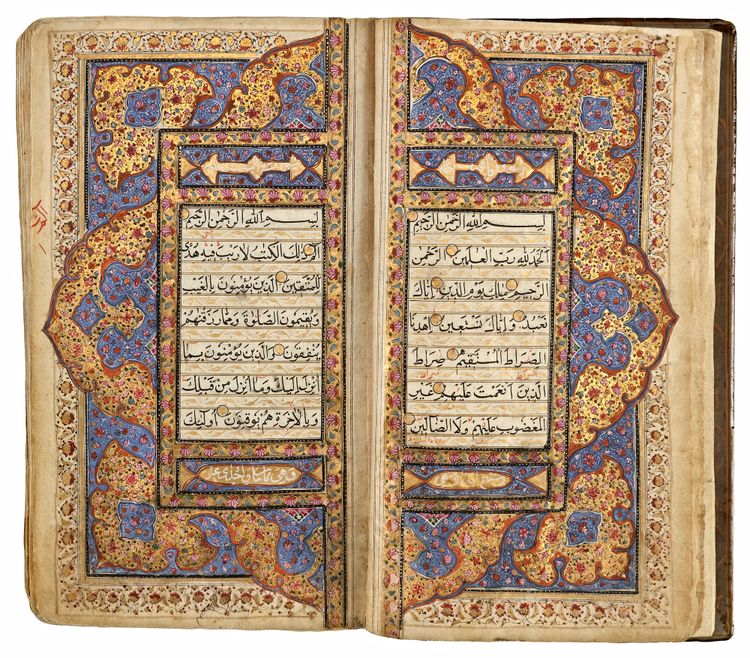 بِسْمِ اللهِ الرَّحْمٰنِ الرَّحِيْمِ
اَلْحَمْدُ لِلهِ رَبِّ الْعٰلَمِيْنَ الرَّحْمٰنِ
الرَّحِيْمِ مٰلِكِ يَوْمِ الدِّيْنِ اِيَّاكَ
نَعْبُدُ وَاِيَّاكَ نَسْتَعِيْنُ اِهْدِنَا
الصِّرَاطَ الْمُسْتَقِيْمَ صِرَاطَ
الَّذِيْنَ اَنْعَمْتَ عَلَيْهِمْ غَيْرِ
الْمَغْضُوْبِ عَلَيْهِمْ وَلَا الضَّالِّيْنَ
بِسْمِ اللهِ الرَّحْمٰنِ الرَّحِيْمِ
الٓمّٓ ذٰلِكَ الْكِتٰبُ لَا رَيْبَ فِيْهِ هُدًى
لِلْمُتَّقِيْنَ الَّذِيْنَ يُؤْمِنُوْنَ بِالْغَيْبِ
وَيُقِيْمُوْنَ الصَّلٰوةَ وَمِمَّا رَزَقْنٰهُمْ
يُنْفِقُوْنَ وَالَّذِيْنَ يُؤْمِنُوْنَ بِمَا
اُنْزِلَ اِلَيْكَ وَمَا اُنْزِلَ مِنْ قَبْلِكَ
وَبِالْاٰخِرَةِ هُمْ يُوْقِنُوْنَ اُولٰٓئِكَ